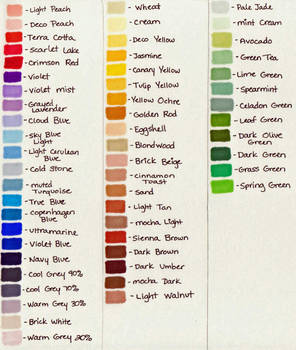 - Light Peach
- Deco Peach
- Terra Cotta
- Scarlet Lake
- Crimson Red
- Violet
- Violet mist
- Grayed
Lavender
- Cloud Blue
- Sky Blue
Light
- Light Cerulean
Blue
- Cold Stone
- muted
Turquoise
- True Blue
- Copenhagen
Blue
- ultramarine
- Violet Blue
- Navy Blue
- Cool Grey 90%
- Cool Grey 70%
- Warm Grey 30%
- Brick White
- Warm Grey 20%
- Wheat
- Cream
- Deco Yellow
- Jasmine
- Canary Yellow
- Tulip Yellow
- Yellow Ochre
- Golden Rod
- Eggshell
- Blondwood
- Brick Beige
- cinnamon
Toast
- Sand
- Light Tan
- mocha Light
- Sienna Brown
- Dark Brown
- Dark Umber
- mocha Dark
- Light Walnut
- Pale Jade
- mint Cream
- Avocado
- Green Tea
- Lime Green
- Spearmint
- Celadon Green
- Leaf Green
- Dark Olive
Green
- Dark Green
- Grass Green
- Spring Green